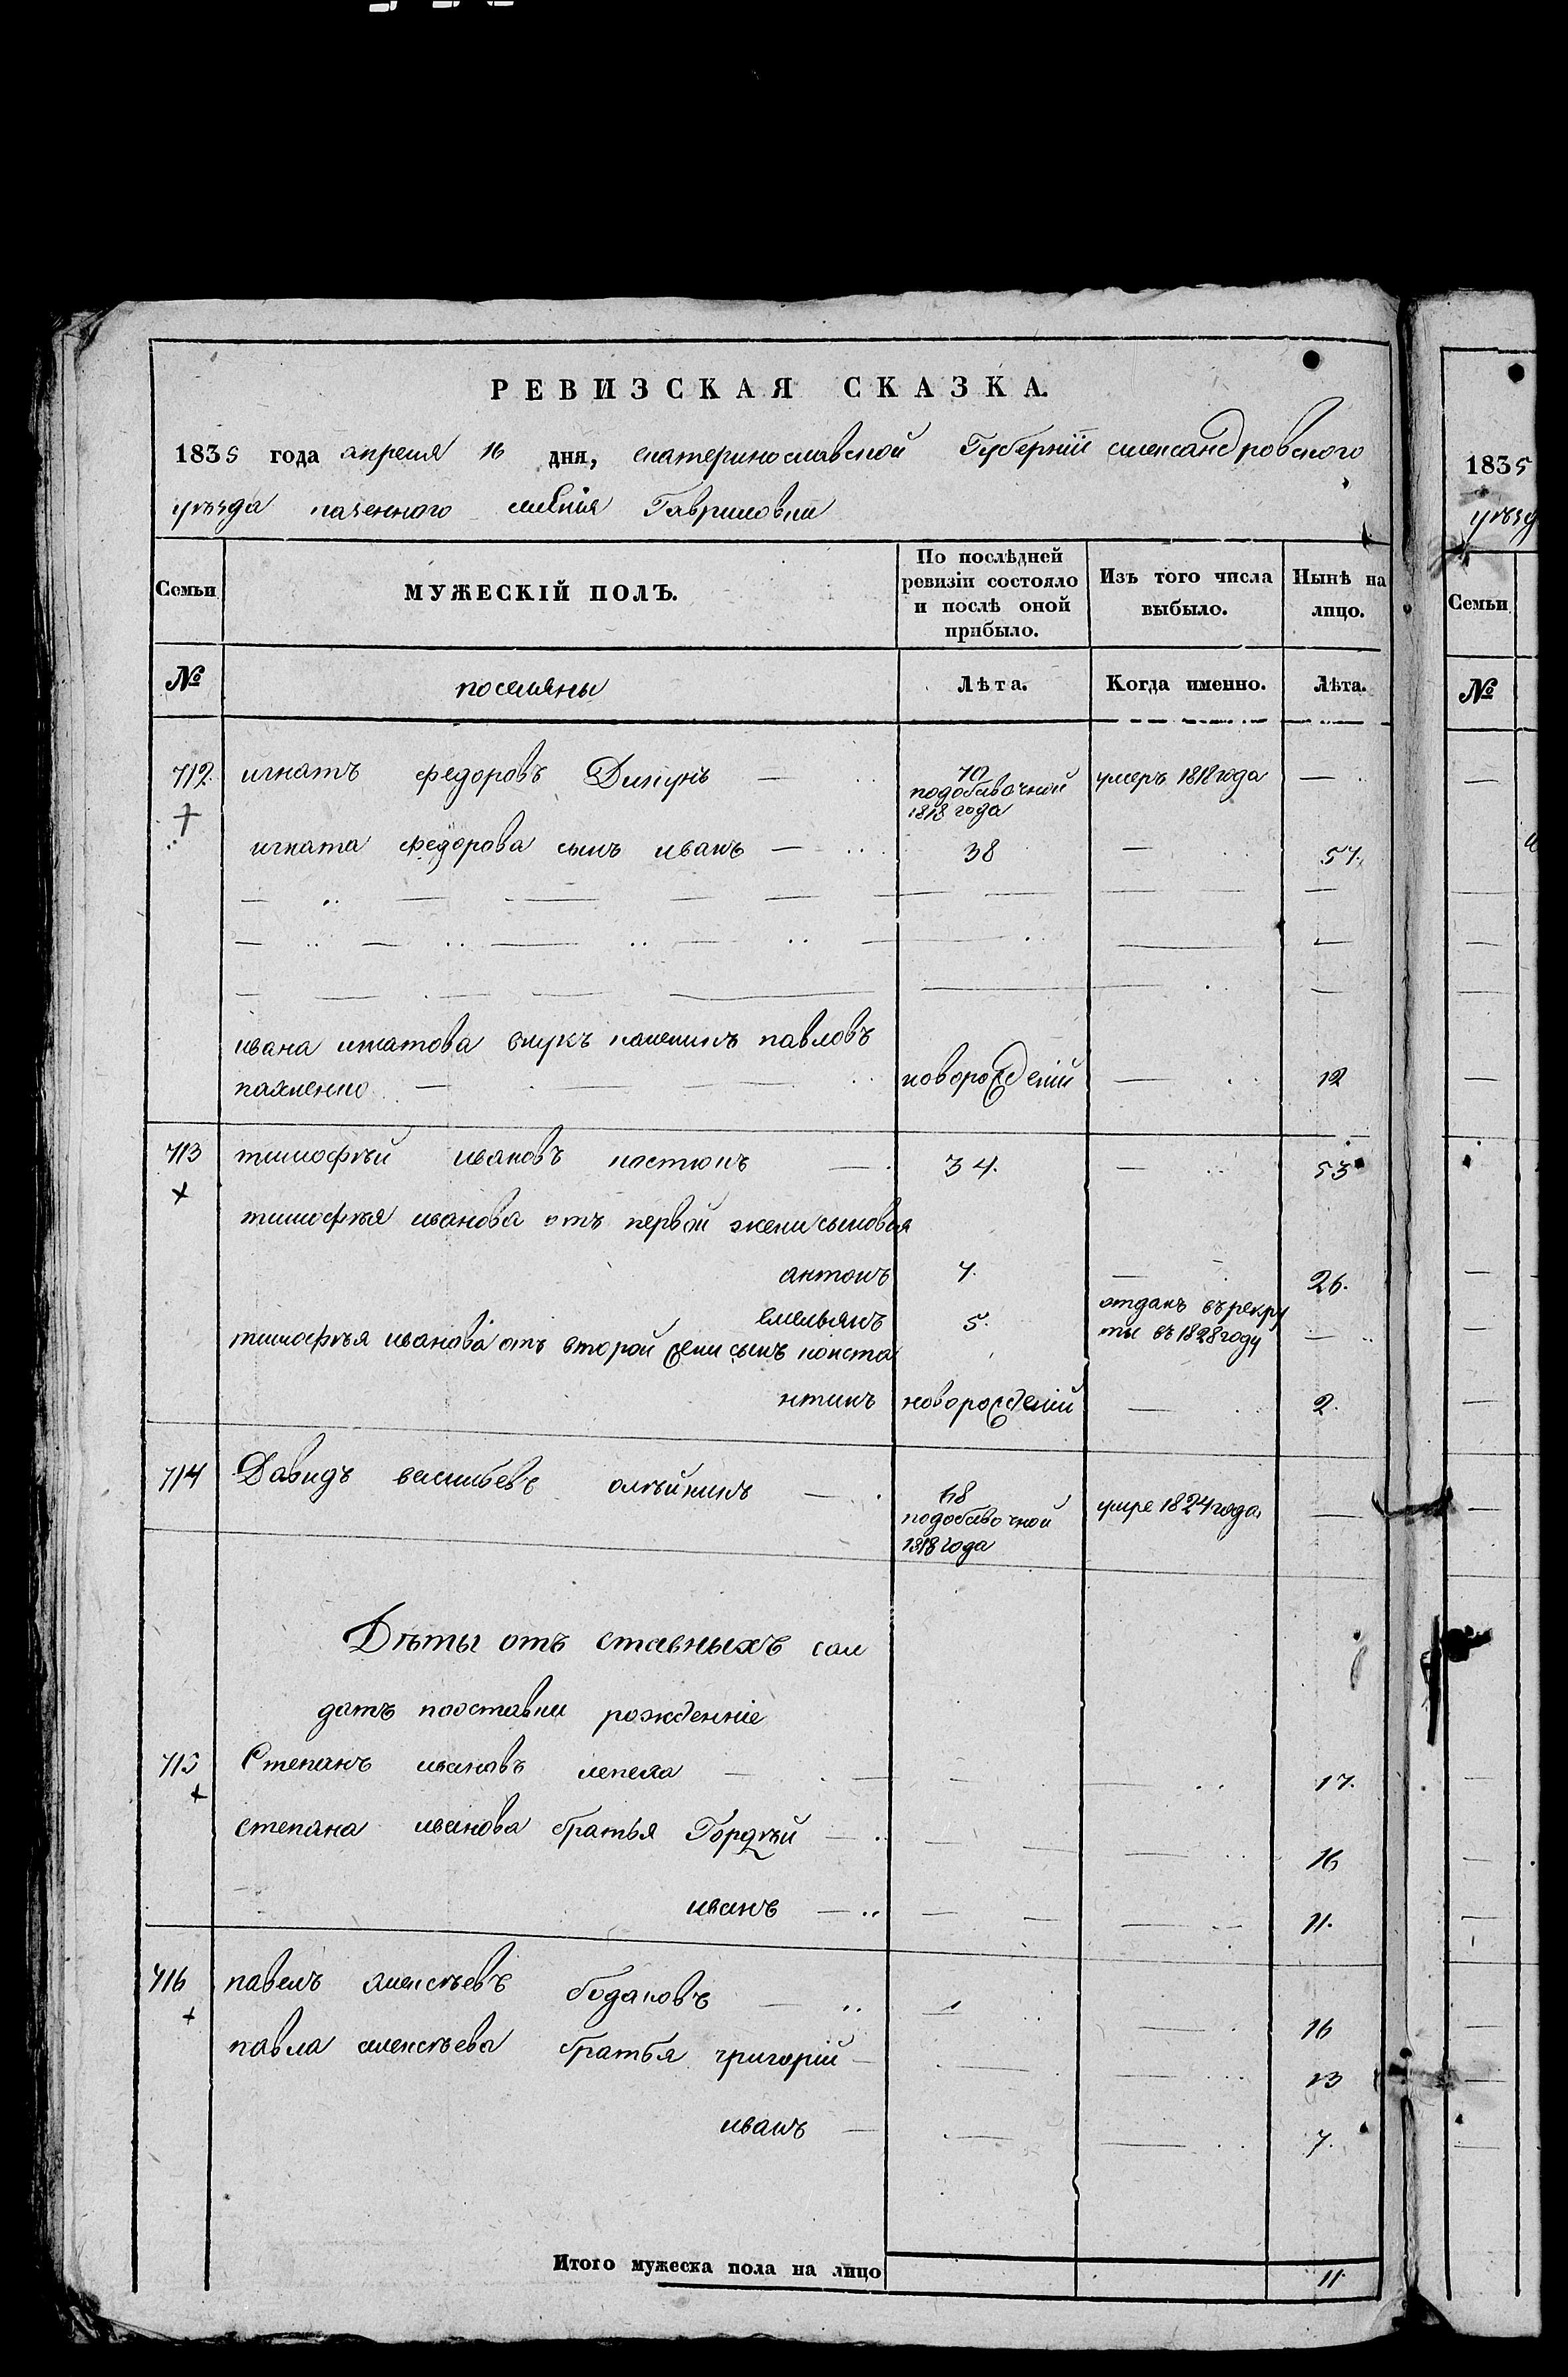 РЕВИЗСКАЯ СКАЗКА.
1835 года апреля 16 дня, екатеринославской Губерніи александровского
уѣзда казенного селенія Гавриловки
Семьи
МУЖЕСКІЙ ПОЛЪ.
По послѣдней ревизіи состояло и послѣ оной прибыло.
Изъ того числа выбыло.
Нынѣ на лицо.
№ поселяны Лѣта. Когда именно. Лѣта.
712. игнатъ федоровъ Дикунъ — 70 подобавочной 1818 года умеръ 1818 года —
игната федорова сынъ иванъ — 38 — 57.
ивана игнатова внукъ павловъ
новорожденій — 12
713 тимофѣй ивановъ костюкъ — 34. — 53
тимофѣя иванова отъ первой жени сыновья
антонъ 7. — 26.
емельянъ 5. отданъ въ рекру
ты въ 1828 году —
тимофѣя иванова отъ второй жени сынъ конста
нтинъ новорожденій — 2.
714 Давидъ васильевъ олѣйникъ — 68 подобавочной 1818 года умре 1824 года —
Дѣты отъ ставныхъ сол
датъ поотставки рожденніе
715 Степанъ ивановъ лепеха — 17.
степана иванова братья Гордѣй — 16
иванъ — 11.
716 павелъ алексѣевъ бодаковъ — 16
павла алексѣева братья григорій — 13
иванъ — 7.
Итого мужеска пола на лицо 11
1835
уѣзд
Семьи
№